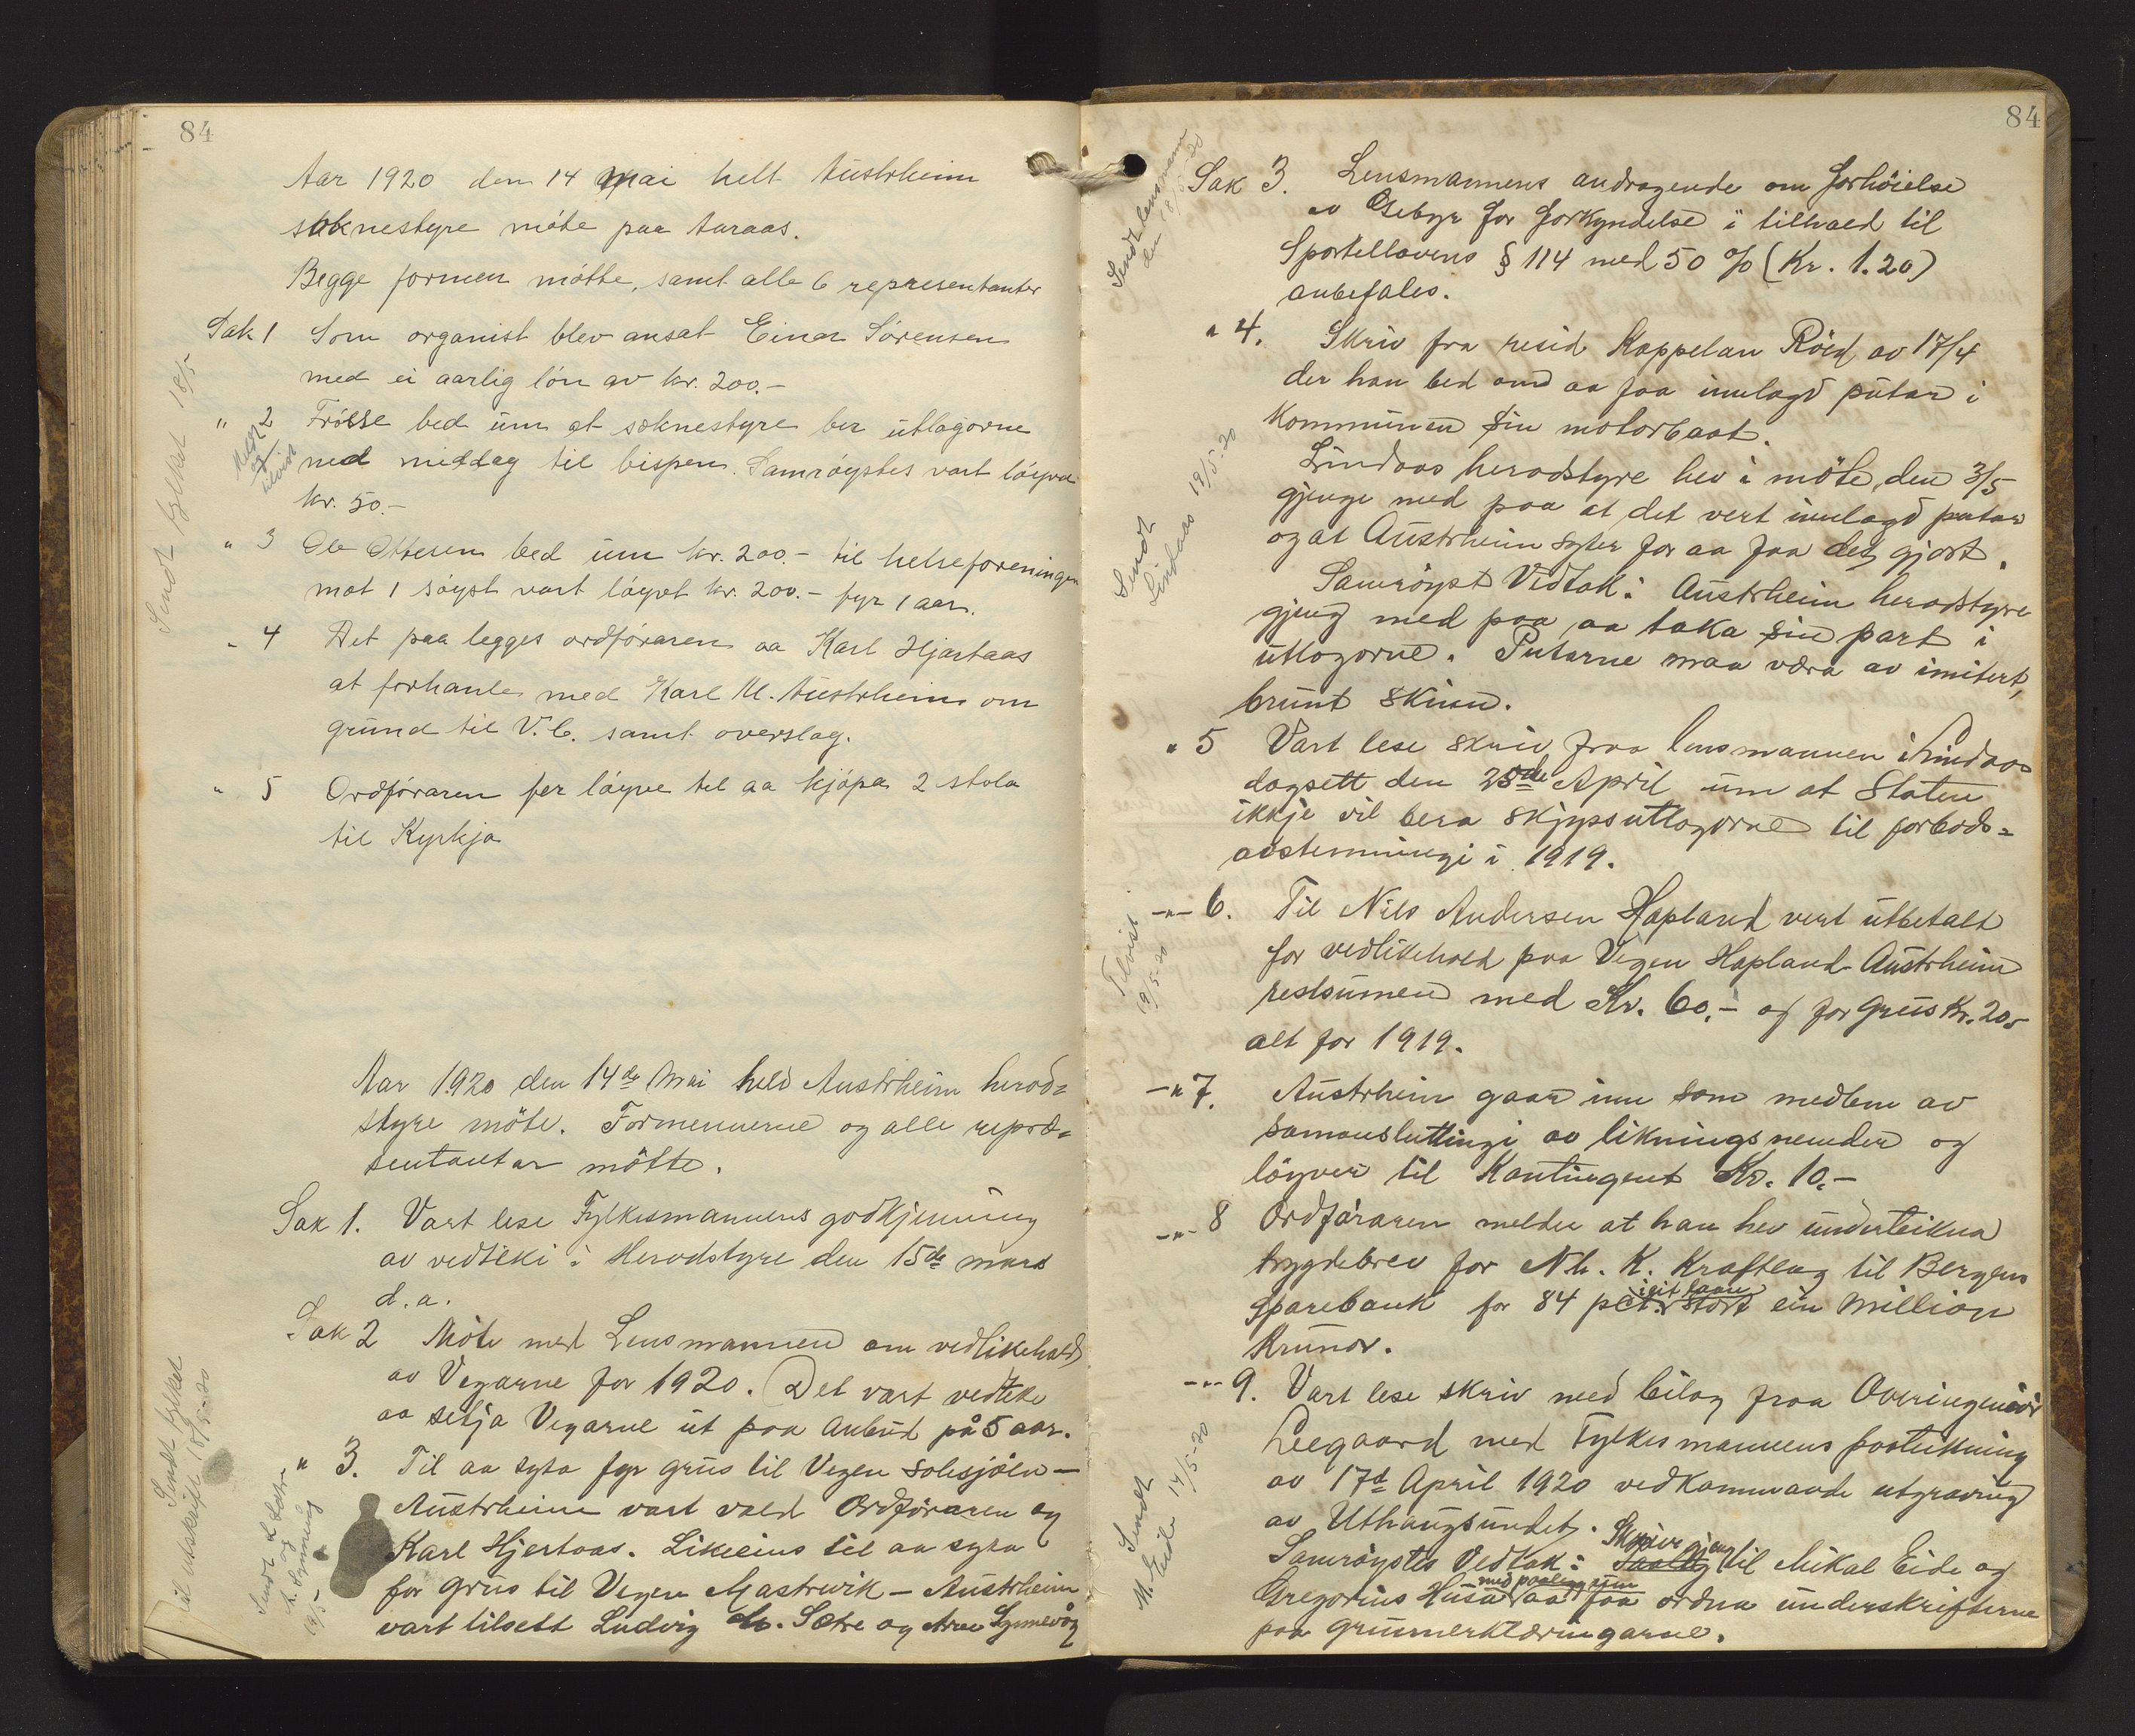 84
Aar 1920 den 14 mai helt Austrheim
soknestyre möte paa Aaraas.
Begge formen mötte, samt alle 6 representanter
Sak 1 Som organist blev ansat Einar Sörensen
med ei aarlig lön av kr. 200.-
Sendt fylket 18/5
" 2 Fröise bed um at soknestyre ber utlagorne
med middag til bispen. Samröystes vart löyva
kr. 50.-
" 3 Ole Ottesen bed um kr. 200.- til helseforeningen
mot 1 söyst vart löyvet kr. 200.- fyr 1 aar.
" 4 Det paa legges ordföraren aa Karl Hjartaas
at forhanle med Karl M. Austrheim om
grund til V.C. samt overslag.
" 5 Ordföraren fer löyve til aa kjöpa 2 stola
til Kyrkja
Aar 1920 den 14de Mai held Austrheim herad=
styre möte. Formennerne og alle repræ=
sentantar mötte.
Sak 1. Vart lese Fylkesmannens godkjenning
av vedteki i Heradstyre den 15de mars
d.a.
Sak 2 Möte med Lensmannen om vedlikehald
av Vegarne for 1920. Det vart vedteke
aa setja Vegarne ut paa Anbud på 5 aar.
Sendt fylket
utskrift 18/5-20
" 3. Til aa syta fyr grus til Vegen Solesjöen -
Austrheim vart vald Ordföraren og
Karl Hjertaas. Likeeins til aa syta
for grus til Vegen Mastrevik - Austrheim
vart tilsett Ludvig Sætre og Arne Synnevåg
19/5
84
Sendt lensmann
den 18/5-20
Sak 3. Lensmannens andragende om forhöielse
av Gebyr for forkyndelse i tilhold til
Sportellovens § 114 med 50 % (Kr. 1.20)
anbefales.
" 4. Skriv fra resid Kappelan Röed av 17/4
der han bed om aa faa innlagd putar i
Kommunen sin motorbaat.
Sendt
Lindaas 19/5-20
Lindaas heradstyre hev i möte den 3/5
gjenge med paa at det vert innlagd putar
og at Austrheim syter for aa faa det gjort.
Samröyst Vedtak: Austrheim heradstyre
gjeng med paa aa taka sin part i
utlogorne. Putarne maa væra av imitert,
brunt skinn.
" 5 Vart lese skriv fraa lensmannen i Lindaas
dagsett den 25de April um at Staten
ikkje vil bera skjyssutlogorne til forbods=
avstemningi i 1919.
Tilvist
19/5-20
-"- 6. Til Nils Andersen Hopland vert utbetalt
for vedlikehald paa Vegen Hopland-Austrheim
restsumen med Kr. 60,- og for grus Kr. 20,-
alt for 1919.
-"- 7. Austrheim gaar inn som medlem av
samansluttingi av likningsnemder og
löyver til Kontingent Kr. 10.-
-"- 8 Ordföraren melder at han hev underteikna
trygdebrev for Nh. K. Kraftlag til Bergens
Sparebank for 84 pct. i eit laan stort ein million
Krunor.
-"- 9. Vart lese skriv med bilag fraa Overingeniör
Leegaard med Fylkesmannens paateikning
av 17d April 1920 vedkommande utgraving
av Uthaugsundet.
Sendt
M. Eide 14/5-20
Samröystes Vedtak: Skriv gjeng til Mikal Eide og
Gregorius Husa med paalegg um aa faa ordna underskrifterne
paa grunnerklæringarne.